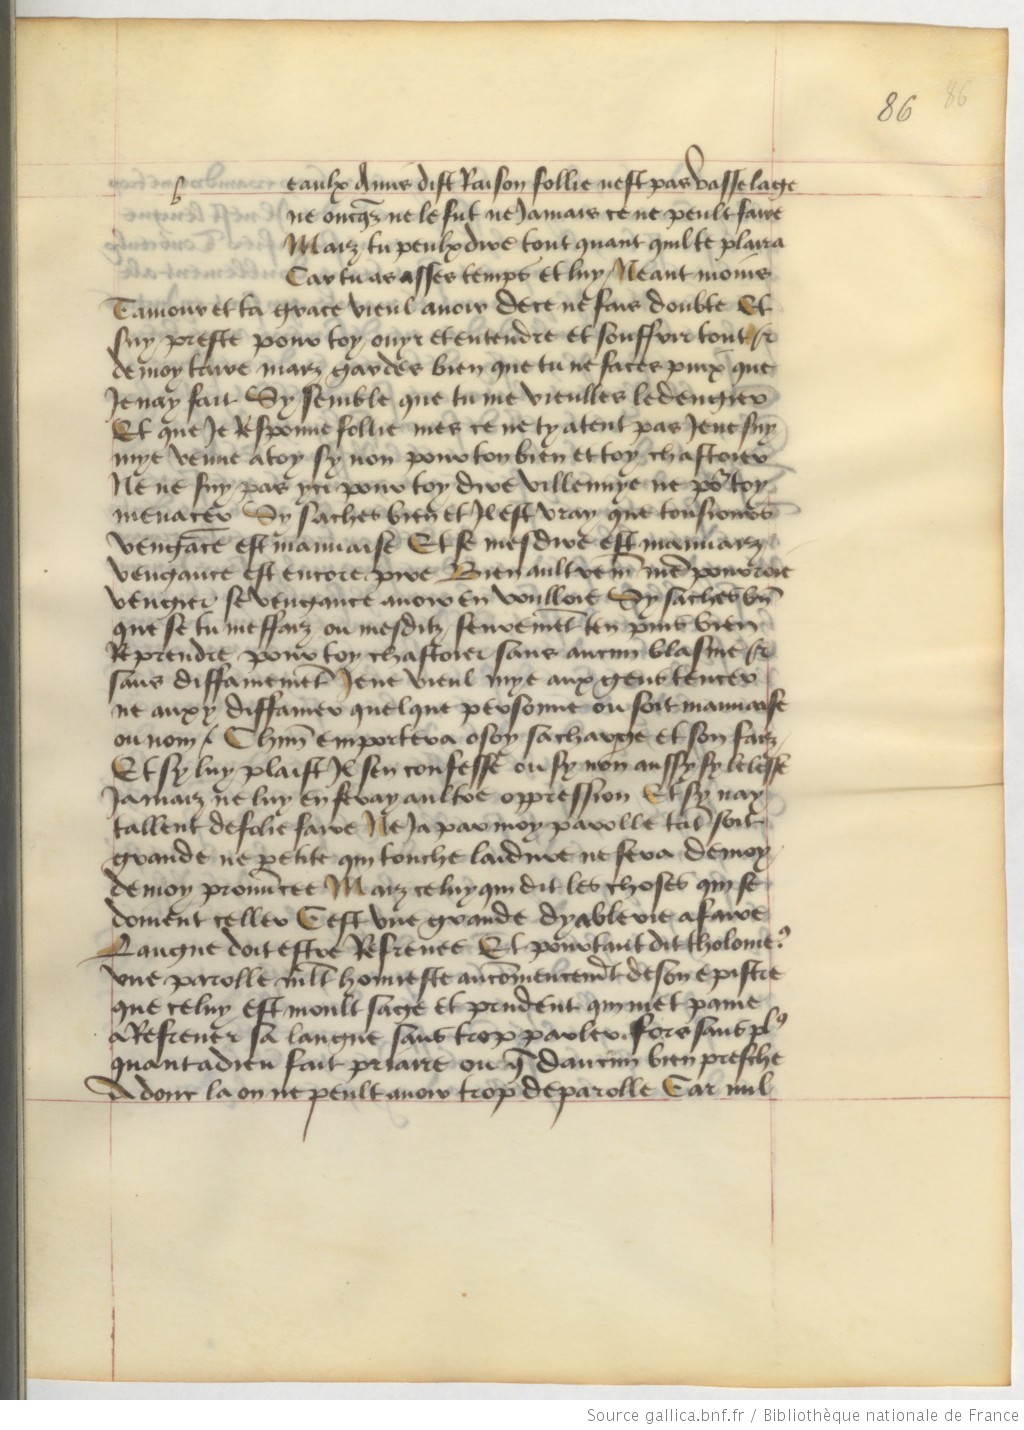 86
86
b eaulx Amis dist Raison follie nest pas vasselage
ne oncq̃z ne le fut ne Jamais ce ne peult faire
Maiz tu peulx dire tout quant quil te plaira
Car tu as asses temps et luy / Neant moins
Tamour et ta grace vieul avoir de ce ne fais doubte Et
suy preste pour toy ouyr et entendre et souffrir tout
de moy taire maiz gardes bien que tu ne faces que
Je nay fait Sy semble que tu me vieulles ledengier
Et que Je Responne follie mes ce ne ty atent pas Je ne suy
mye venue a toy sy non pour ton bien et toy chastoier
Ne ne suy pas yci pour toy dire villennye ne po^r toy
menacer Sy saches bien et Il est vray que tousiours
vengãce est mauvaise Et se mesdire est mauvaiz
vengance est encore pire Bien aultremẽ men pourroie
vengier se vengance avoir en voulloie Sy saches bñ
que se tu meffaiz ou mesditz / seuremẽt ten puis bien
Reprendre pour toy chastoier sans aucun blasme
sans diffamemẽt Je ne vieul mye aux gens tencer
ne aux y diffamer quelque personne ou soit mauvaise
ou nom / Chũn emportera o soy sa charge et son faiz
Et sy luy plaist Il sen confesse ou sy non aussy sy le lesse
Jamaiz ne luy en feray aultre oppression Et sy nay
tallent de folie faire Ne Ja par moy parolle tãt soit
grande ne petite qui touche laidure ne sera de moy
de moy pronũcee Maiz celuy qui dit les choses qui se
doivent celler Cest une grande dyablerie a faire
Langue doit estre Refrenee Et pourtant dit tholome⁹
une parolle mlt honneste au cõmencemẽt de son epistre
que celuy est moult sage et prudent qui met paine
a Refrener sa langue sans trop parler fors sans pl⁹
quant a dieu fait priaire ou q̃ daucun bien presche
Adonc la on ne peult avoir trop de parolle Car nul
Source gallica.bnf.fr / Bibliothèque nationale de France